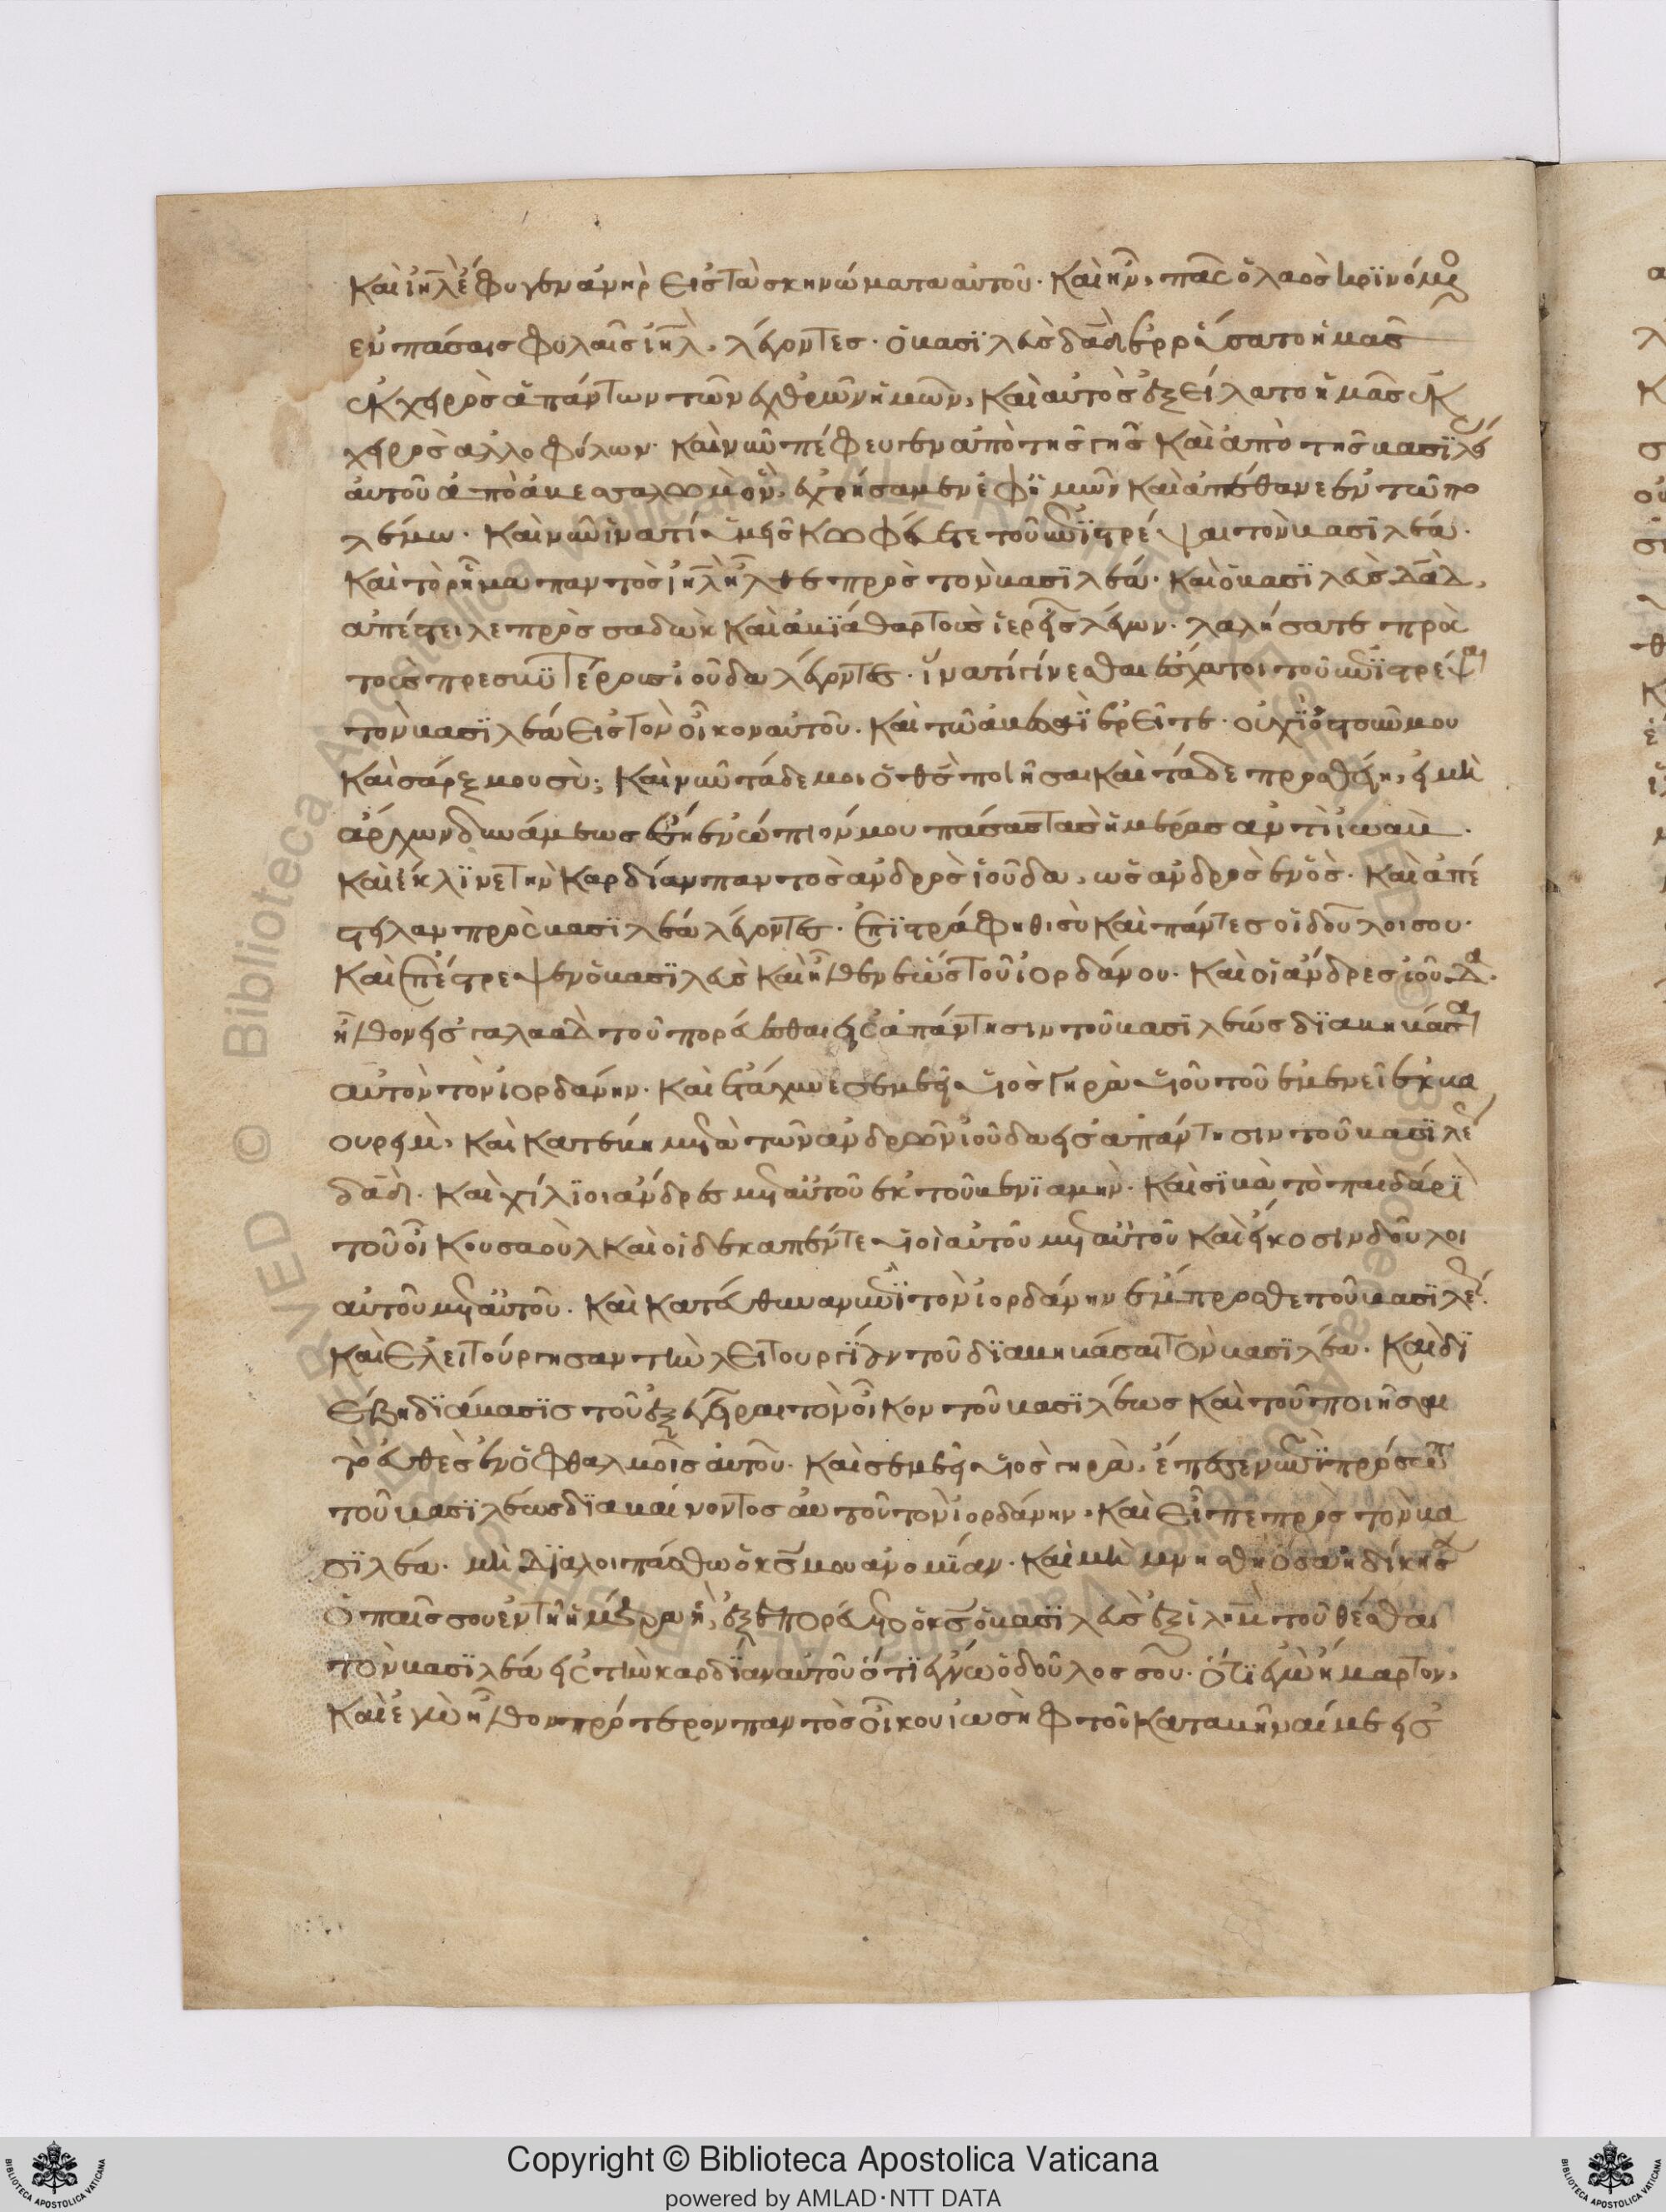 καὶ ἰη̅λ̅ ἔφυγεν ἀνὴρ εἰς τὰ σκηνώματα αὐτοῦ· καὶ ἦν, πᾶς ὁ λαὸς κρϊνόμε
ἐν πάσαις φυλαῖς ἰη̅λ̅, λέγοντες· ὁ βασϊλεὺς δα̅δ̅ ἐρρύσατο ἡμᾶς
ἐκ χειρὸς ἁπάντων τῶν ἐχθρῶν ἡμῶν, καὶ αὐτὸς ἐξείλατο ἡμᾶς ἐκ
χειρὸς ἀλλοφύλων· καὶ νῦν πέφευγεν ἀπὸ τῆς γῆς καὶ ἀπὸ τῆς βασϊλεί
αὐτοῦ ἀπὸ ἀβεσαλωμ ὃν, ἐχρίσαμεν ἐφ' ἡμῶν καὶ ἀπέθανε ἐν τῶ πο
λέμω· καὶ νῦν ἱνατί ὑμεῖς κωφεύετε τοῦ ἐπϊστρέψαι τὸν βασιλέα·
καὶ τὸ ρῆμα παντὸς ἰη̅λ̅ ἦλθε πρὸς τὸν βασϊλέα· καὶ ὁ βασϊλεὺς δα̅δ̅,
ἀπέστειλε πρὸς σαδὼκ καὶ ἀβϊάθαρ τοὺς ἱερεῖς λέγων· λαλήσατε πρὸς
τοὺς πρεσβϋτέρους ἰούδα λέγοντες· ἱνατί γίνεσθαι ἔσχατοι τοῦ ἐπϊστρέψαι
τὸν βασϊλέα εἰς τὸν οἶκον αὐτοῦ· καὶ τῶ ἀμεσσαϊ ἐρεῖτε· οὐχὶ ὀστοῦν μου
καὶ σάρξ μου σὺ; καὶ νῦν τάδε μοι ὁ θς̅ ποιῆσαι καὶ τάδε προσθείη, εἰ μὴ
ἄρχων δυνάμεως ἔση ἐνώπιόν μου πάσας τὰς ἡμέρας ἀντὶ ἰωαβ·
καὶ ἔκλϊνε τὴν καρδίαν παντὸς ἀνδρὸς ἰούδα, ὡς ἀνδρὸς ἑνός· καὶ ἀπέ
στειλαν πρὸς βασϊλέα λέγοντες· ἐπϊστράφηθι σὺ καὶ πάντες οἱ δοῦλοι σου·
καὶ ἐπέστρεψεν ὁ βασϊλεὺς καὶ ἦλθεν ἕως τοῦ ἰορδάνου· καὶ οἱ ἄνδρες ἰούδα·
ἦλθον εἰς γαλααδ τοῦ πορεύεσθαι εἰς ἀπάντησιν τοῦ βασιλέως δϊαβηβάσαι
αὐτὸν τὸν ἰορδάνην· καὶ ἐτάχυνε σεμεεὶ υἱὸς γηρὰ υἱοῦ τοῦ ἐμενεῒ ἐκ βα
ουρεὶμ, καὶ κατέβη μετὰ τῶν ἀνδρῶν ἰούδα εἰς ἀπάντησιν τοῦ βασϊλέ
δα̅δ̅· καὶ χίλϊοι ἄνδρες μετ' αὐτοῦ ἐκ τοῦ βενϊαμήν· καὶ σϊβὰ τὸ παιδάρϊ
τοῦ οἴκου σαοὺλ καὶ οἱ δεκαπέντε υἱοὶ αὐτοῦ μετ' αὐτοῦ καὶ εἴκοσιν δοῦλοι
αὐτοῦ μετ' αὐτοῦ· καὶ κατεύθυναν ἐπϊ τὸν ἰορδάνην ἔμπροσθε τοῦ βασϊλέ·
καὶ ἐλειτούργησαν τὴν λειτουργϊάν τοῦ δϊαβηβάσαι τὸν βασϊλέα· καὶ δϊ
έβη δϊάβασϊς τοῦ ἐξεγεῖραι τὸν οἶκον τοῦ βασϊλέως καὶ τοῦ ποιῆσαι
τὸ εὐθὲς ἐν ὀφθαλμοῖς αὐτοῦ· καὶ σεμεεὶ υἱὸς γηρὰ, ἔπεσεν ἐπϊ πρόσωπ
τοῦ βασϊλέως δϊαβαίνοντος αὐτοῦ τὸν ἰορδάνην, καὶ εἶπε πρὸς τὸν βα
σϊλέα· μὴ δϊαλογισάσθω ὁ κς̅ μου ἀνομϊαν· καὶ μὴ μνησθῆς ὅσα ἠδίκησ
ὁ παῖς σου ἐν τῆ ἡμέρα ἧ, ἐξεπορεύετο ὁ κς̅ ὁ βασϊλεὺς ἐξ ἰλημ τοῦ θέσθαι
τὸν βασϊλέα εἰς τὴν καρδϊαν αὐτοῦ ὅτϊ ἔγνω ὁ δοῦλος σου· ὅτϊ ἐγὼ ἥμαρτον,
καὶ ἐγὼ ἦλθον πρότερον παντὸς οἴκου ἰωσὴφ τοῦ καταβῆναί με εἰς
Copyright © Biblioteca Apostolica Vaticana
powered by AMLAD·NTT DATA